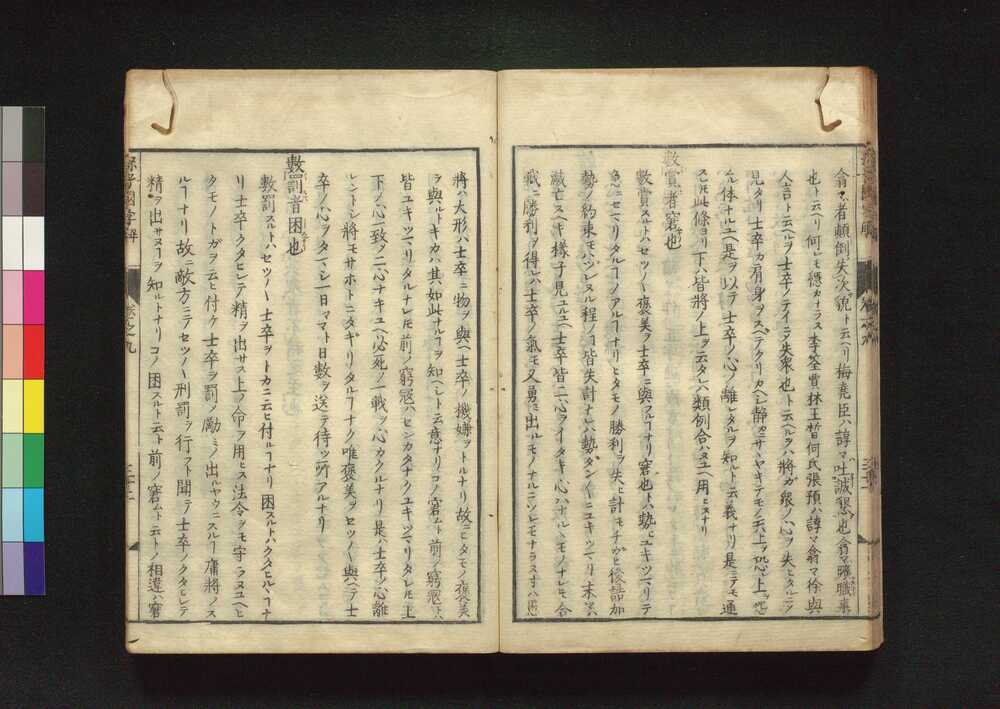 翕々者顛倒失次貌ト云ヘリ梅堯臣ハ諄々吐誠懇也翕々曠職事
也ト云ヘリ何レモ穏カナラス李筌賈林王晳何氏張預ハ諄々翕々徐與
人言ト云ヘルヲ士卒ノテイニ失衆也ト云ヘルヲハ將ガ衆ノ心ヲ失ヒタルニ
見タリ士卒カ肩身ヲスヘテクリカヘシ静カニサヽヤキテモノ云
体ナルユヘ是ヲ以テ士卒ノ心ノ離レタルヲ知ルト云義ナリ是ニテモ通
スレ𪜈此條ヨリ下ハ皆將ノ上ヲ云タレハ類例合ハヌユヘ用ヒスナリ
數賞者窘也
數賞スルトハセツ〱褒美ヲ士卒ニ與フルヿナリ窘也トハ勢ヒユキツマリテ
急ニセマリタルヿノアルヿナリヒタモノ勝利ヲ失ヒ計モチガヒ後詰加
勢ノ約束モハツレヌル程ノヿ皆失計ナレハ勢ダン〱ニユキツマリ末ハ
滅亡スヘキ樣子見ユルユヘ士卒皆二心ヲイダキ心ハナル丶モノナレ𪜈合
戰ニ勝利ヲ得レハ士卒ノ氣モ又勇ミ出ルモノナルニ
將ハ大形ハ士卒ニ物ヲ與ヘ士卒ノ機嫌ヲトルナリ故ニヒタモノ褒美
ヲ與ルトキカハ其如此ナルヿヲ知ヘシト云意ナリコノ窘ムト前ノ窮寇トハ
皆ユキツマリタルナレ𪜈前ノ窮寇ハセンカタナクユキツマリタレ𪜈上
下ノ心一致ヲ二心ナキユヘ必死ノ一戰ヲ心カクルナリ是ハ士卒ノ心離
レントシ將モサホトニタギリタルヿナク唯褒美ヲセツ〱與ヘテ士
卒ノ心ヲタマシ一日々マト日數ヲ送テ待ツ所アルナリ
數罰者困也
數罰スルトハセツ〱士卒ヲトカニ云ヒ付ルヿナリ困スルトハクタヒル丶ヿナ
リ士卒クタヒレテ精ヲ出サス上ノ命ヲ用ヒス法令ヲモ守ラヌユヘヒ
タモノトガヲ云ヒ付ケ士卒ヲ罰メ勵ミノ出ルヤウニスルヿ庸將ノス
ルヿナリ故ニ敵方ニテセツ〱刑罰ヲ行フト聞テ士卒ノクタヒレテ
精ヲ出サヌヿヲ知ルトナリコノ困スルト云ト前ノ窘ムト云トノ相違ハ窘
孫子國字解
卷之九